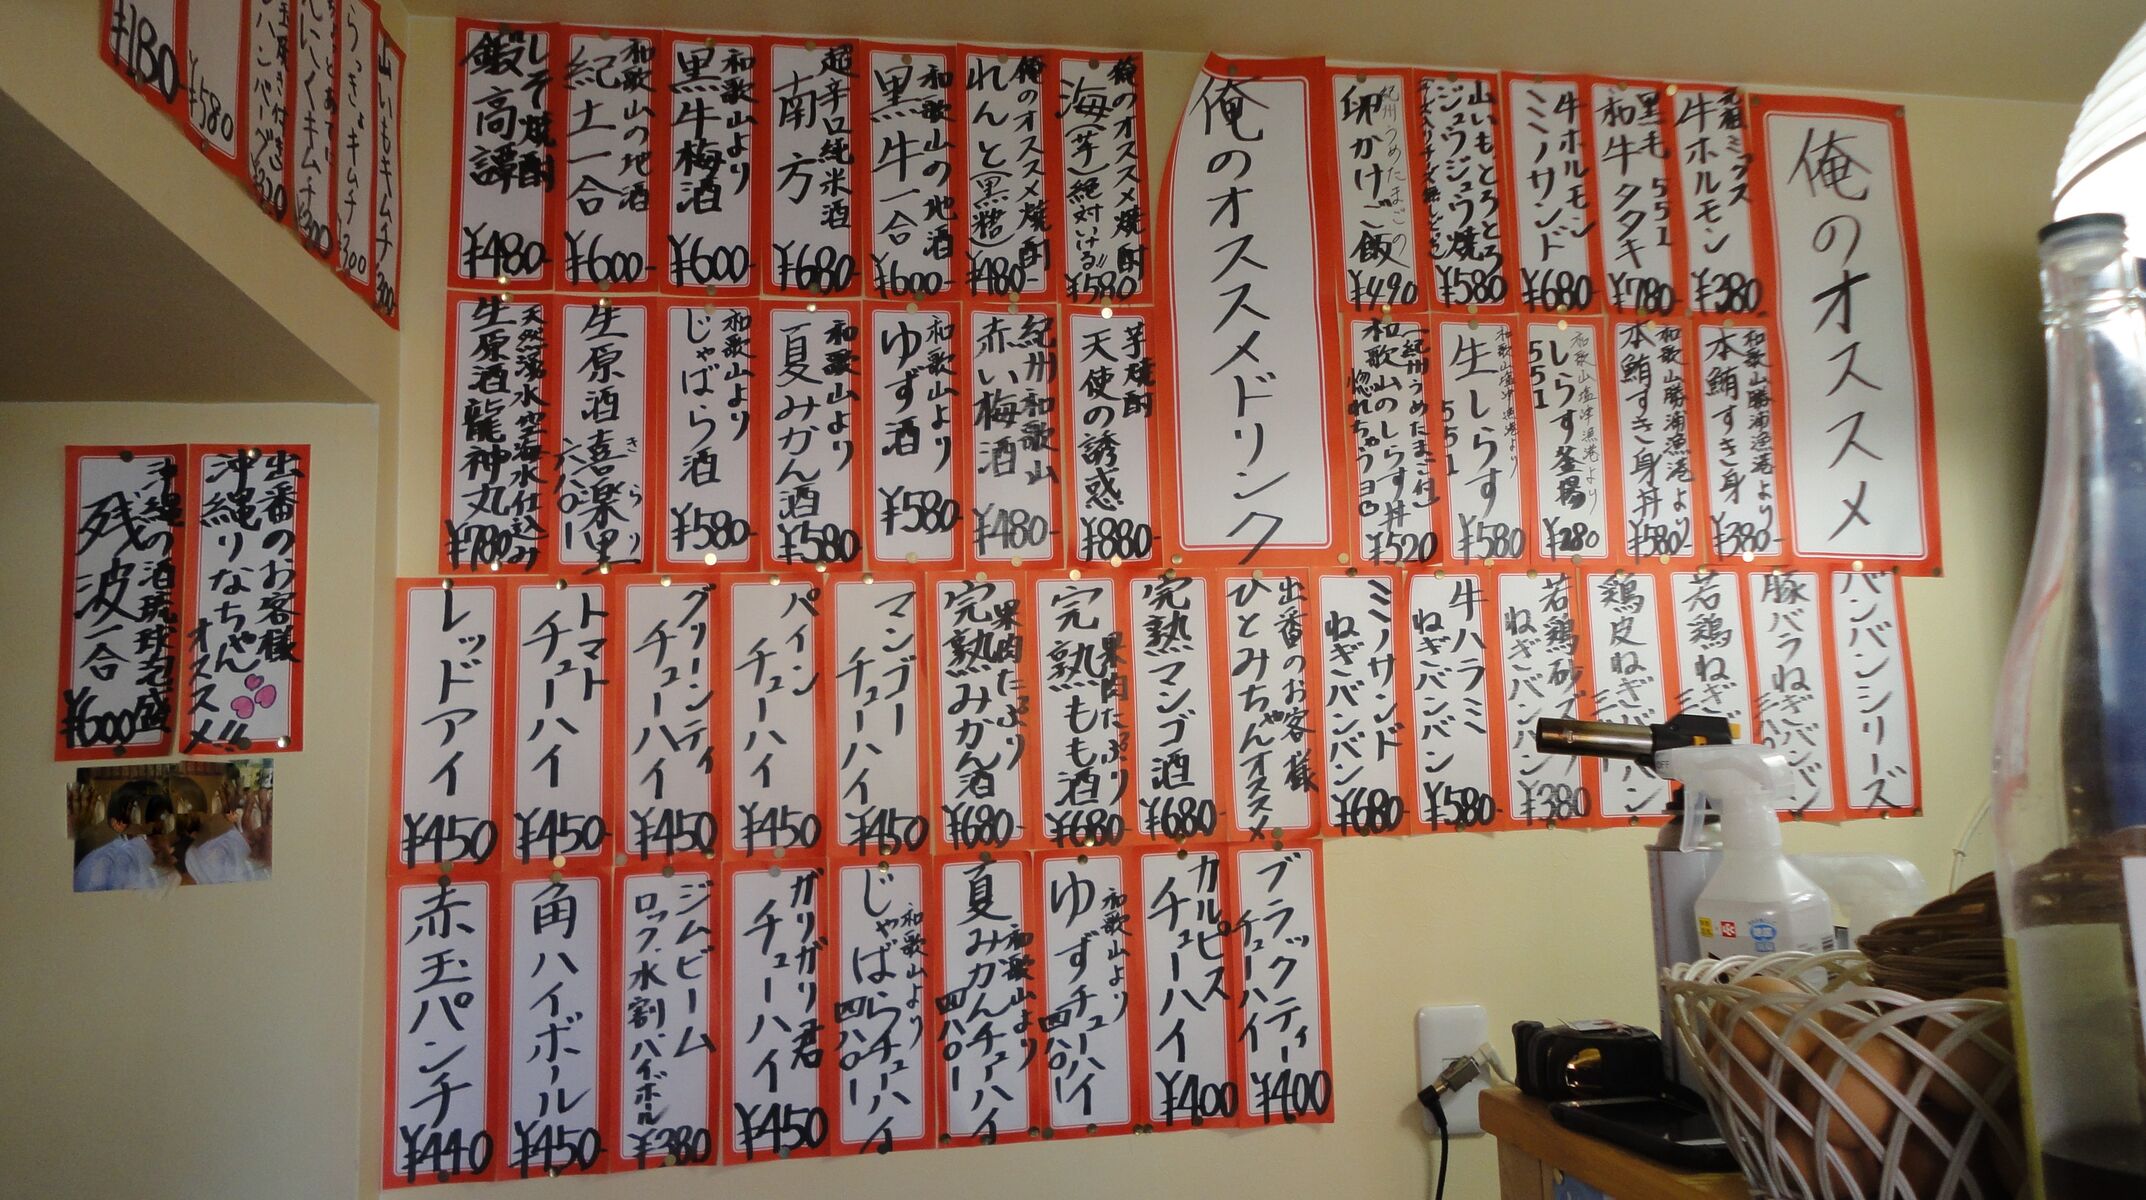 俺のオススメ
元祖ミダス
牛ホルモン
¥380
黒毛 551
和牛タタキ
¥780-
牛ホルモン
ミノサンド
¥680
山いもとろとろ
ジュウジュウ焼
¥580
紀州うめたまごの
卵かけご飯
¥490
和歌山勝浦漁港より
本鮪すき身
¥380-
和歌山勝浦漁港より
本鮪すき身丼
¥580-
和歌山塩津漁港より
しらす釜揚
551
¥280
和歌山塩津漁港より
生しらす
551
¥580
(紀州うめたまご付)
和歌山のしらす丼
惚れちゃう
¥520
俺のオススメドリンク
俺のオススメ焼酎
海(芋)絶対いける!!
¥580
俺のオススメ焼酎
れんと(黒糖)
¥480-
和歌山の地酒
黒牛一合
¥600-
超辛口純米酒
南方
¥680
和歌山より
黒牛梅酒
¥600-
和歌山の地酒
紀土一合
¥600-
しそ焼酎
鍛高譚
¥480-
芋焼酎
天使の誘惑
¥880-
紀州和歌山
赤い梅酒
¥480-
和歌山より
ゆず酒
¥580-
和歌山より
夏みかん酒
¥580
和歌山より
じゃばら酒
¥580-
生原酒喜楽里
きらり
六八〇ー
天然湧水空海水仕込み
生原酒龍神丸
¥780-
バンバンシリーズ
豚バラねぎバンバン
若鶏ねぎ
鶏皮ねぎ
若鶏砂ズリ
ねぎバンバン
¥380
牛ハラミ
ねぎバンバン
¥580-
ミノサンド
ねぎバンバン
¥680-
出番のお客様
ひとみちゃんオススメ
完熟マンゴ酒
¥680-
果肉たっぷり
完熟もも酒
¥680-
果肉たっぷり
完熟みかん酒
¥680-
マンゴー
チューハイ
¥450
パイン
チューハイ
¥450
グリーンティ
チューハイ
¥450
トマト
チューハイ
¥450-
レッドアイ
¥450
ブラックティー
チューハイ
¥400
カルピス
チューハイ
¥400
和歌山より
ゆずチューハイ
四八〇ー
和歌山より
夏みかんチューハイ
四八〇ー
和歌山より
じゃばらチューハイ
四八〇ー
ガリガリ君
チューハイ
¥450
ジムビーム
ロック、水割、ハイボール
¥380
角ハイボール
¥450-
赤玉パンチ
¥440
山いもキムチ
¥300
らっきょキムチ
¥300
にんにくキムチ
¥300
ハンバーグ
¥320
¥580
¥180
出番のお客様
沖縄りなちゃん
オススメ!!
沖縄の酒琉球泡盛
残波一合
¥600